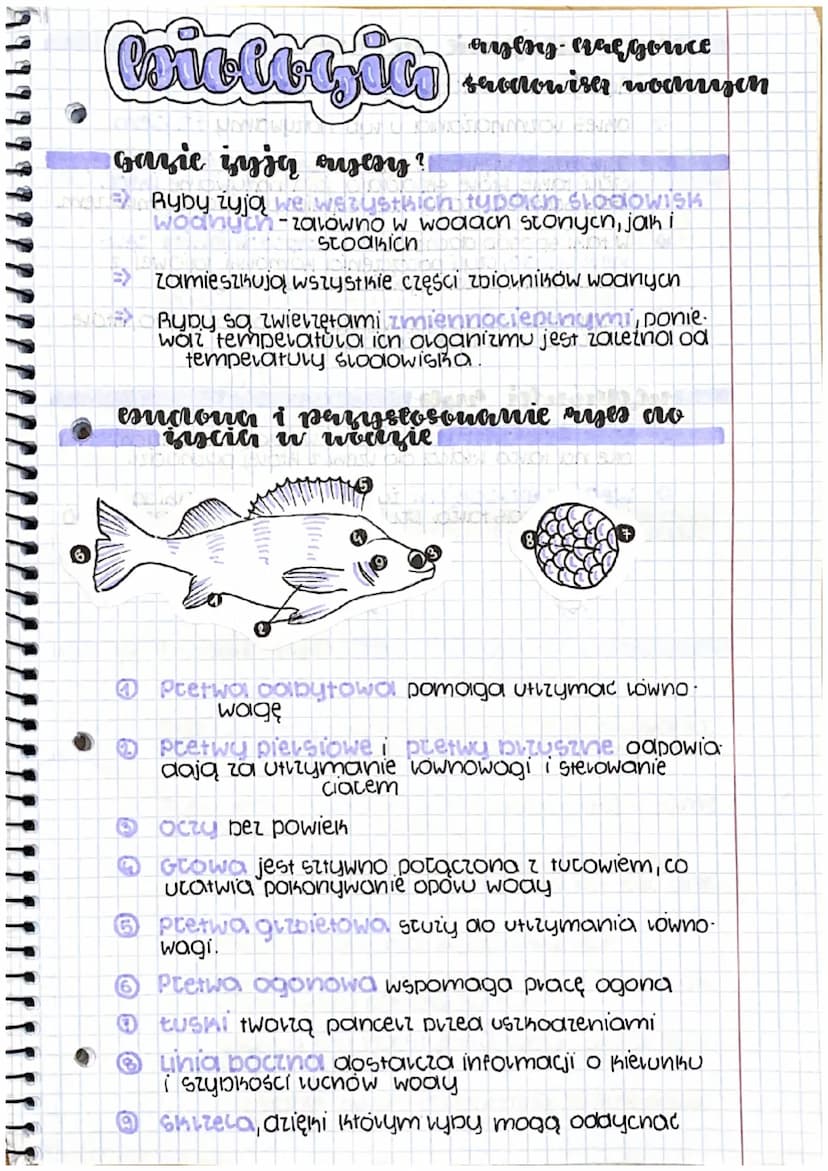 biologia
ryby - kręgowce
środowisk wodnych
Gdzie żyją ryby?
⇒ Ryby żyją we wszystkich typach środowisk
wodnych - zarówno w wodach słonych, jak i
słodkich
⇒ zamieszkują wszystkie części zbiorników wodnych
⇒ Ryby są zwierzętami zmiennocieplnymi, ponie-
waż temperatura ich organizmu jest zależna od
temperatury środowiska.
Budowa i przystosowanie ryb do
życia w wodzie
5
4
3
9
6
1
2
8
7
① Płetwa odbytowa pomaga utrzymać równo-
wagę
② Płetwy piersiowe i płetwy brzuszne odpowia-
dają za utrzymanie równowagi i sterowanie
ciałem
③ oczy bez powiek
④ Głowa jest sztywno połączona z tułowiem, co
ułatwia pokonywanie oporu wody
⑤ Płetwa grzbietowa służy do utrzymania równo-
wagi.
⑥ Płetwa ogonowa wspomaga pracę ogona
⑦ łuski tworzą pancerz przed uszkodzeniami
⑧ Linia boczna dostarcza informacji o kierunku
i szybkości ruchów wody
⑨ skrzela, dzięki którym ryby mogą oddychać